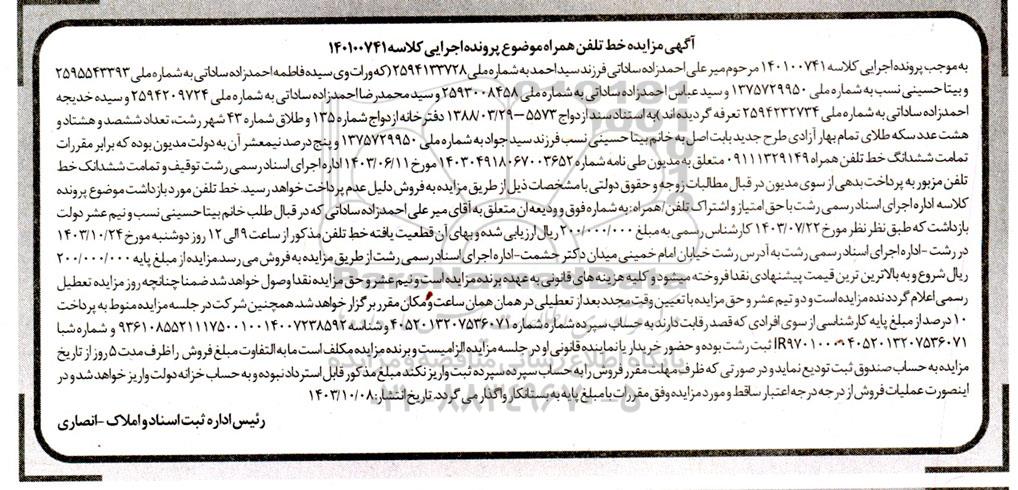 آگهی مزایده خط تلفن همراه موضوع پرونده اجرایی کلاسه ۱۴۰۱۰۰۷۴۱
به موجب پرونده اجرایی کلاسه ۱۴۰۱۰۰۷۴۱ مرحوم میر علی احمدزاده ساداتی فرزند سید احمد به شماره ملی ۲۵۹۴۱۳۳۷۲۸ (که وراث وی سیده فاطمه احمدزاده ساداتی به شماره ملی ۲۵۹۵۵۴۳۳۹۳
و بیتا حسینی نسب به شماره ملی ۱۳۷۵۷۲۹۹۵۰ و سید عباس احمدزاده ساداتی به شماره ملی ۲۵۹۳۰۰۸۴۵۸ و سید محمدرضا احمدزاده ساداتی به شماره ملی ۲۵۹۴۲۰۹۷۲۴ و سیده خدیجه
احمدزاده ساداتی به شماره ملی ۲۵۹۴۲۳۲۷۳۴ تعرفه گردیده اند) به استناد سند ازدواج ۵۵۷۳ – ۱۳۸۸/۰۳/۲۹ دفترخانه ازدواج شماره ۱۳۵ و طلاق شماره ۴۳ شهر رشت، تعداد ششصد و هشتاد و
هشت عدد سکه طلای تمام بهار آزادی طرح جدید بابت اصل به خانم بیتا حسینی نسب فرزند سید جواد به شماره ملی ۱۳۷۵۷۲۹۹۵۰ و پنج درصد نیمعشر آن به دولت مدیون بوده که برابر مقررات
تمامت ششدانگ خط تلفن همراه ۰۹۱۱۱۳۲۹۱۴۹ متعلق به مدیون طی نامه شماره ۱۴۰۳۰۴۹۱۸۰۶۷۰۰۳۶۵۲ مورخ ۱۴۰۳/۰۶/۱۱ اداره اجرای اسناد رسمی رشت توقیف و تمامت ششدانگ خط
تلفن مزبور به پرداخت بدهی از سوی مدیون در قبال مطالبات زوجه و حقوق دولتی با مشخصات ذیل از طریق مزایده به فروش دلیل عدم پرداخت خواهد رسید. خط تلفن مورد بازداشت موضوع پرونده
کلاسه اداره اجرای اسناد رسمی رشت با حق امتیاز و اشتراک تلفن / همراه: به شماره فوق و ودیعه ان متعلق به آقای میر علی احمدزاده ساداتی که در قبال طلب خانم بیتا حسینی نسب و نیم عشر دولت
بازداشت که طبق نظر نظر مورخ ۱۴۰۳/۰۷/۲۲ کارشناس رسمی به مبلغ ۲۰۰/۰۰۰/۰۰۰ ریال ارزیابی شده و بهای آن قطعیت یافته خط تلفن مذکور از ساعت ۹ الی ۱۲ روز دوشنبه مورخ ۱۴۰۳/۱۰/۲۴
در رشت – اداره اجرای اسناد رسمی رشت به آدرس رشت خیابان امام خمینی میدان دکتر حشمت – اداره اجرای اسناد رسمی رشت از طریق مزایده به فروش می رسد. مزایده از مبلغ پایه ۲۰۰/۰۰۰/۰۰۰
ریال شروع و به بالاترین ترین قیمت پیشنهادی نقدا فروخته میشود و کلیه هزینه های قانونی به عهده برنده مزایده است و نیم عشر و حق مزایده نقدا وصول خواهد شد ضمنا چنانچه روز مزایده تعطیل
رسمی اعلام گردد نده مزایده است و دو نیم عشر و حق مزایده با تعیین وقت مجدد بعد از تعطیلی در همان همان ساعت و مکان مقرر برگزار خواهد شد. همچنین شرکت در جلسه مزایده منوط به پرداخت
۱۰ درصد از مبلغ پایه کارشناسی از سوی افرادی که قصد رقابت دارند به حساب سپرده شماره شماره ۴۰۵۲۰۱۳۲۰۷۵۳۶۰۷۱ و شناسه ۹۳۶۱۰۸۵۵۲۱۱۱۷۵۰۰۱۰۰۱۴۰۰۷۲۳۸۵۹۲ و شماره شبا
۴۰۵۲۰۱۳۲۰۷۵۳۶۰۷۱ IR۹۷۰۱۰۰۰ ثبت رشت بوده و حضور خریدار یا نماینده قانونی او در جلسه مزایده الزامیست و برنده مزایده مکلف است ما به التفاوت مبلغ فروش را ظرف مدت ۵ روز از تاریخ
مزایده به حساب صندوق ثبت تودیع نماید و در صورتی که ظرف مهلت مقرر فروش را به حساب سپرده سپرده ثبت واریز نکند مبلغ مذکور قابل استرداد نبوده و به حساب خزانه دولت واریز خواهد شد و در
اینصورت عملیات فروش از درجه درجه اعتبار ساقط و مورد مزایده وفق مقررات با مبلغ پایه به بستانکار واگذار می گردد. تاریخ انتشار: ۱۴۰۳/۱۰/۰۸
رئیس اداره ثبت اسناد و املاک – انصاری